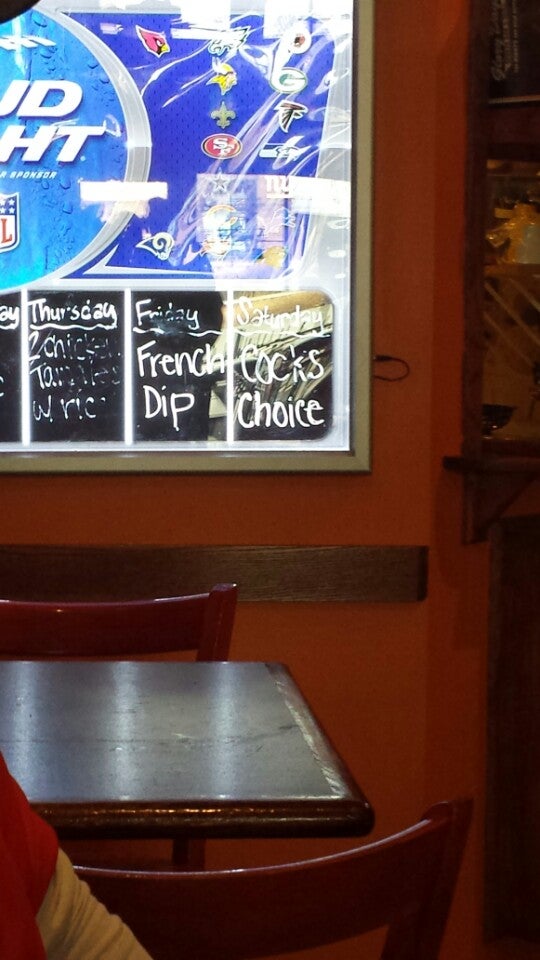 UD
HT
R SPONSOR
NFL
SF
G
ay
Thursday
2 chicken
Tamales
w/ ric
Friday
French
Dip
Saturday
Cocks
Choice